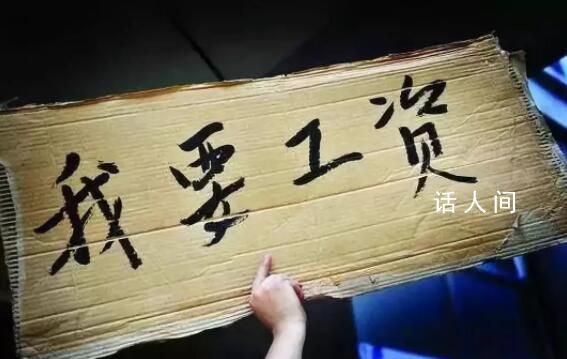 我要工资
话人间